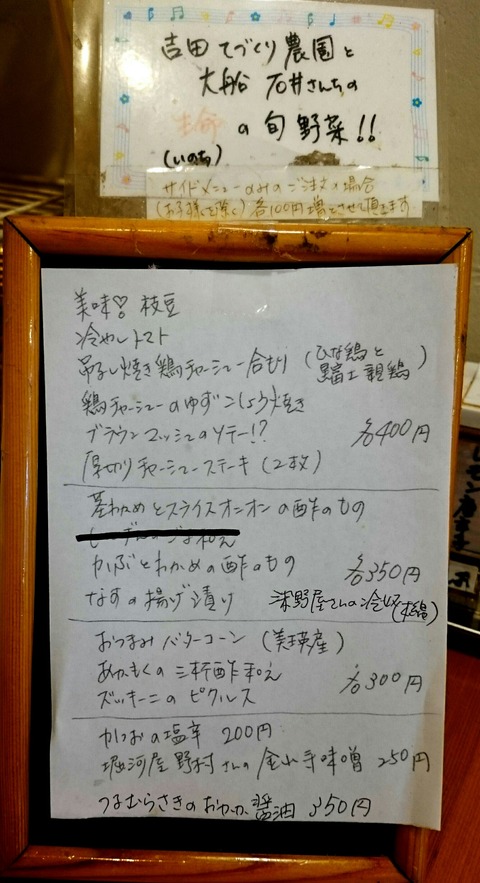 吉田てづくり農園と
大船 石井さんちの
生命の旬野菜!!
(いのち)
サイドメニューのみのご注文の場合
(お子様を除く)各100円増とさせて頂きます
美味♡! 枝豆
冷やしトマト
吊るし焼き鶏チャーシュー合もり (ひな鶏と
黒富士親鶏)
鶏チャーシューのゆずこしょう焼き
ブラウンマッシュのソテー!?
各400円
厚切りチャーシューステーキ (2枚)
茎わかめとスライスオニオンの酢のもの
かぶとわかめの酢のもの
各350円
なすの揚げ漬け
さんの冷奴(木綿)
おつまみバターコーン (美瑛産)
あかもくの三杯酢和え
各300円
ズッキーニのピクルス
かつおの塩辛 200円
堀河屋野村さんの金山寺味噌 250円
つるむらさきのおかか醤油 350円